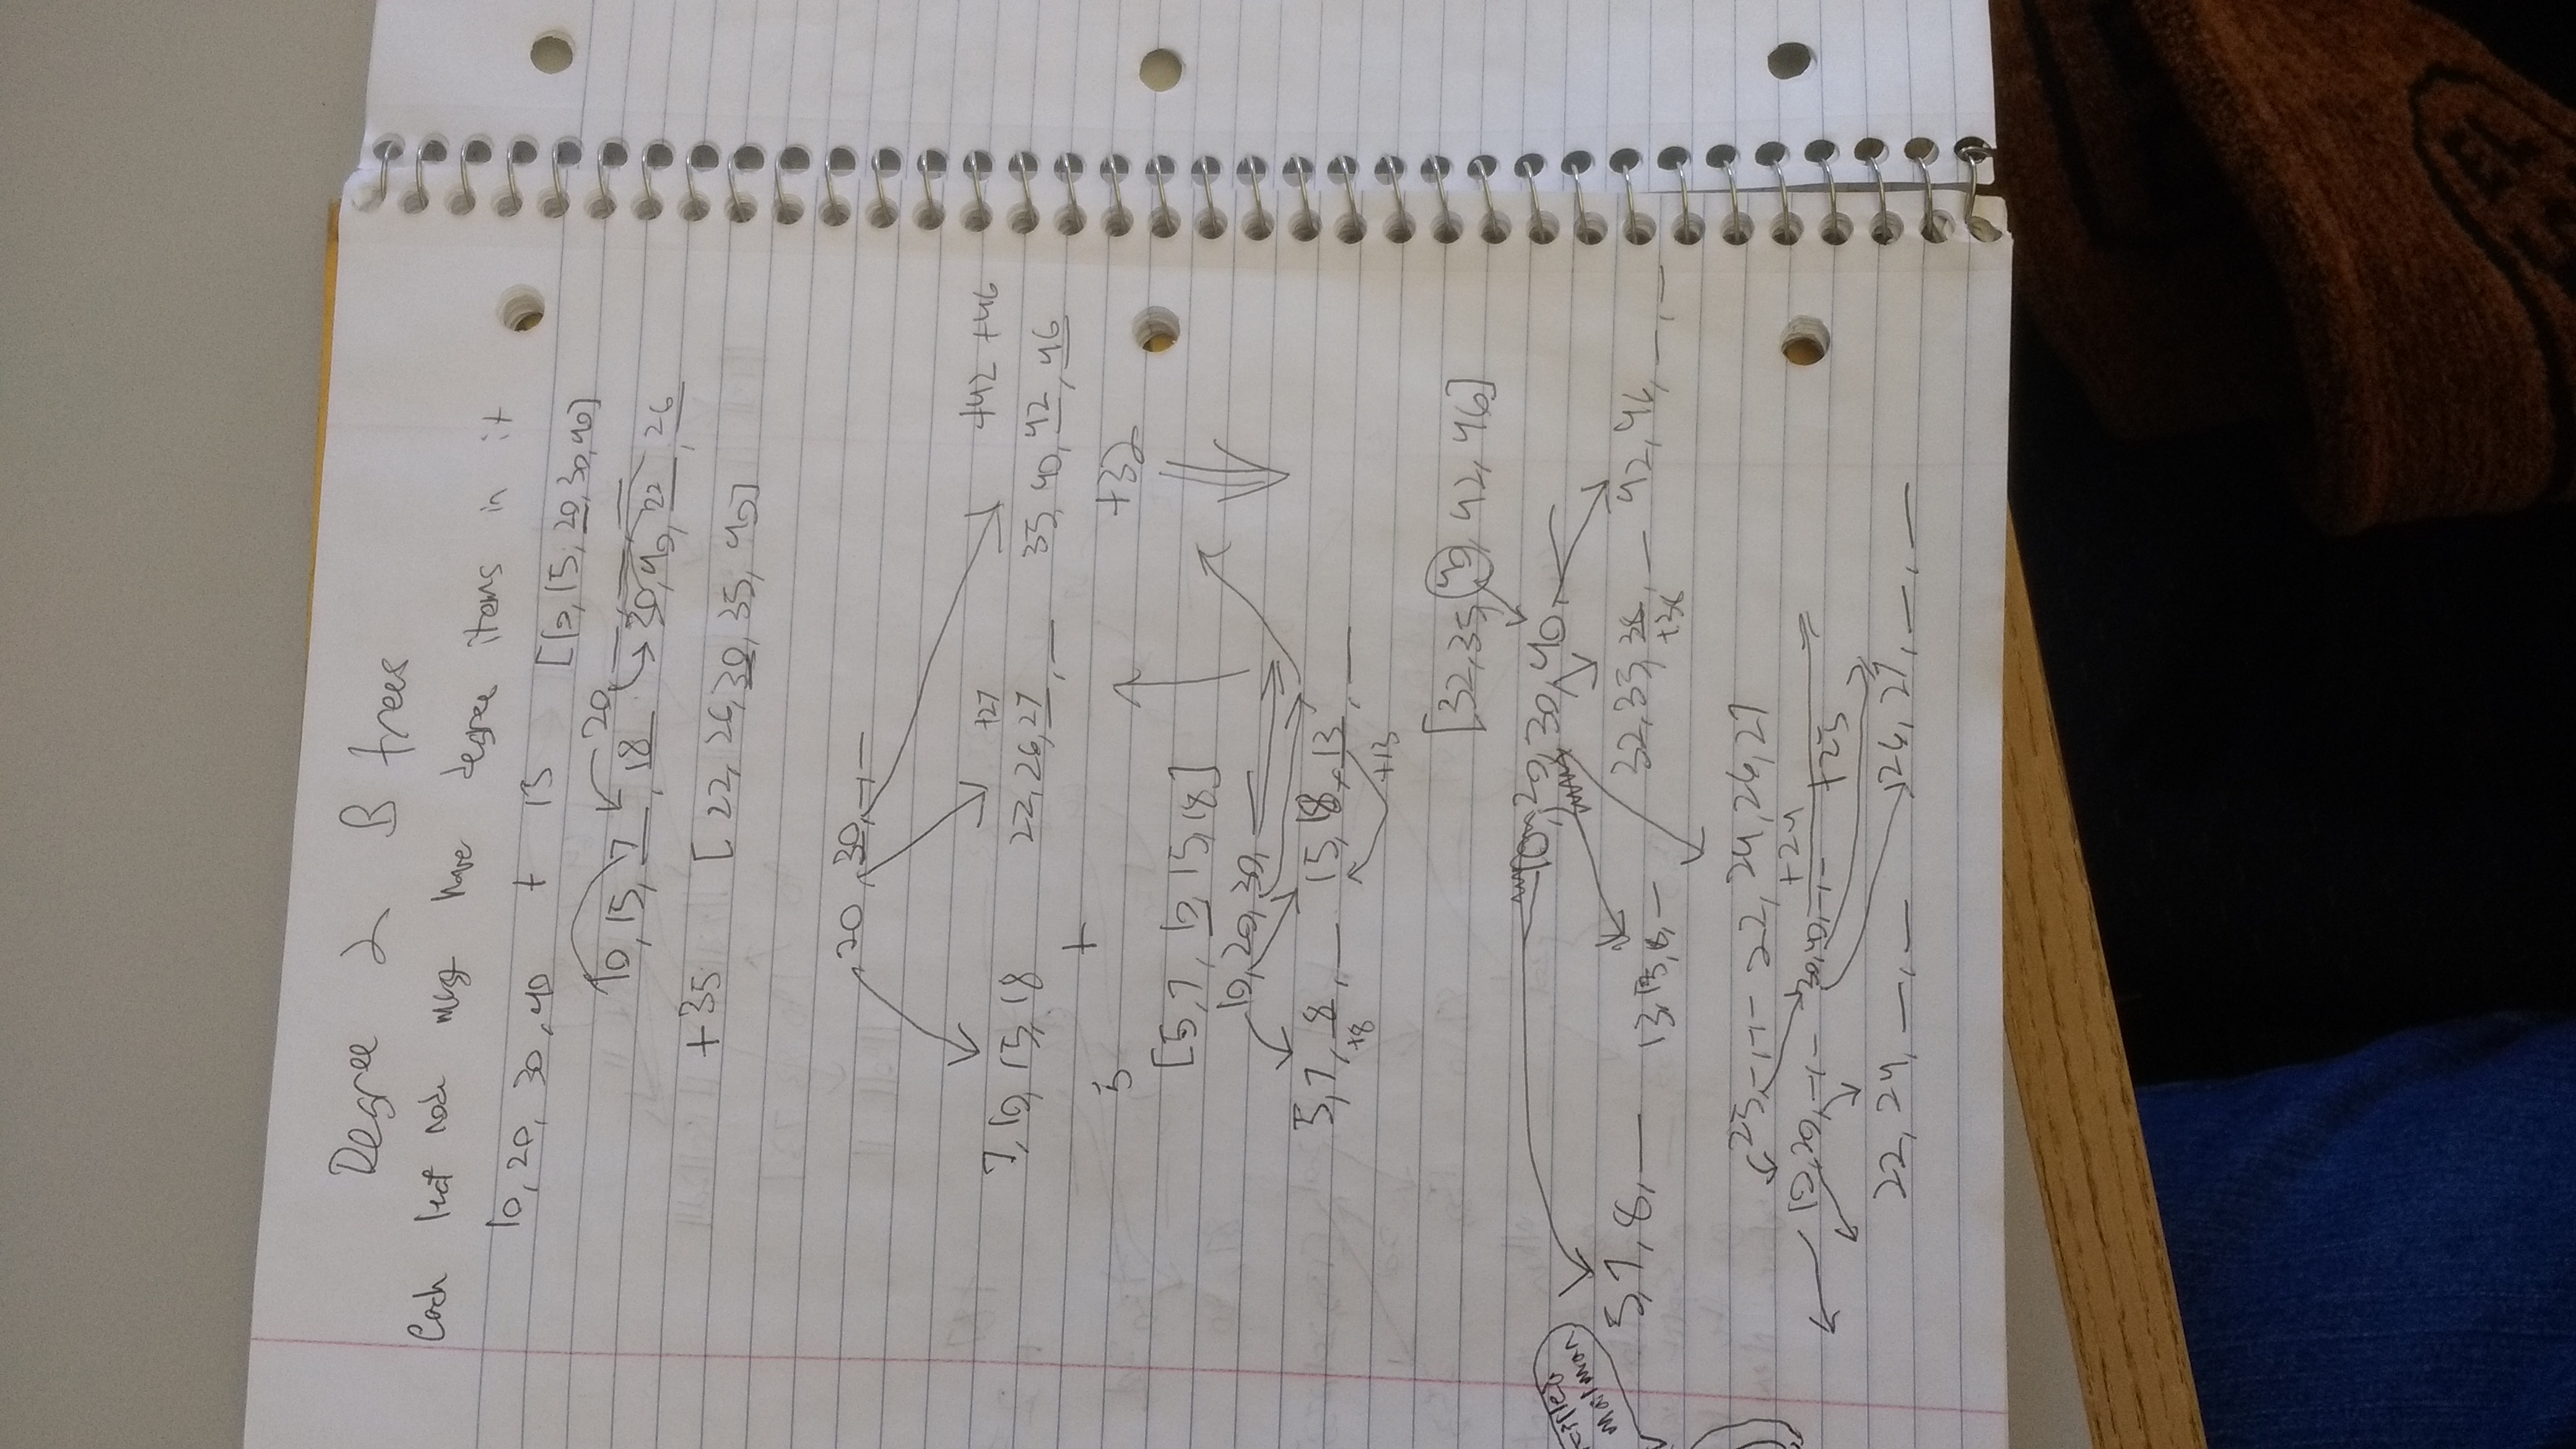 Degree 2 B trees
Each leaf node must have degree items in it
10, 20, 30, 40 + 15 [10, 15, 20, 30, 40]
20,
10, 15, 7, 18 30, 40, 22, 26
+35 [22, 26, 30, 35, 40]
,20, 30, –, –
+27 +42 +46
7, 10, 15, 18 22, 26, 27, – 35, 40, 42, 46
5 + +32
[5, 7, 10, 15, 18]
10, 20, 30, –
5, 7, 8, – 15, 18, 13, –
+8 +13
[32, 35, 40, 42, 46]
10, 20, 30, 40, –
5, 7, 8, – 13, 15, 18, – 32, 35, 38, – 42, 46, –, –
+38
25, –, –, – 22, 24, 26, 27
+24
10, 20, –, – 30, 40, –, – +25
22, 24, –, – 26, 27, –, –